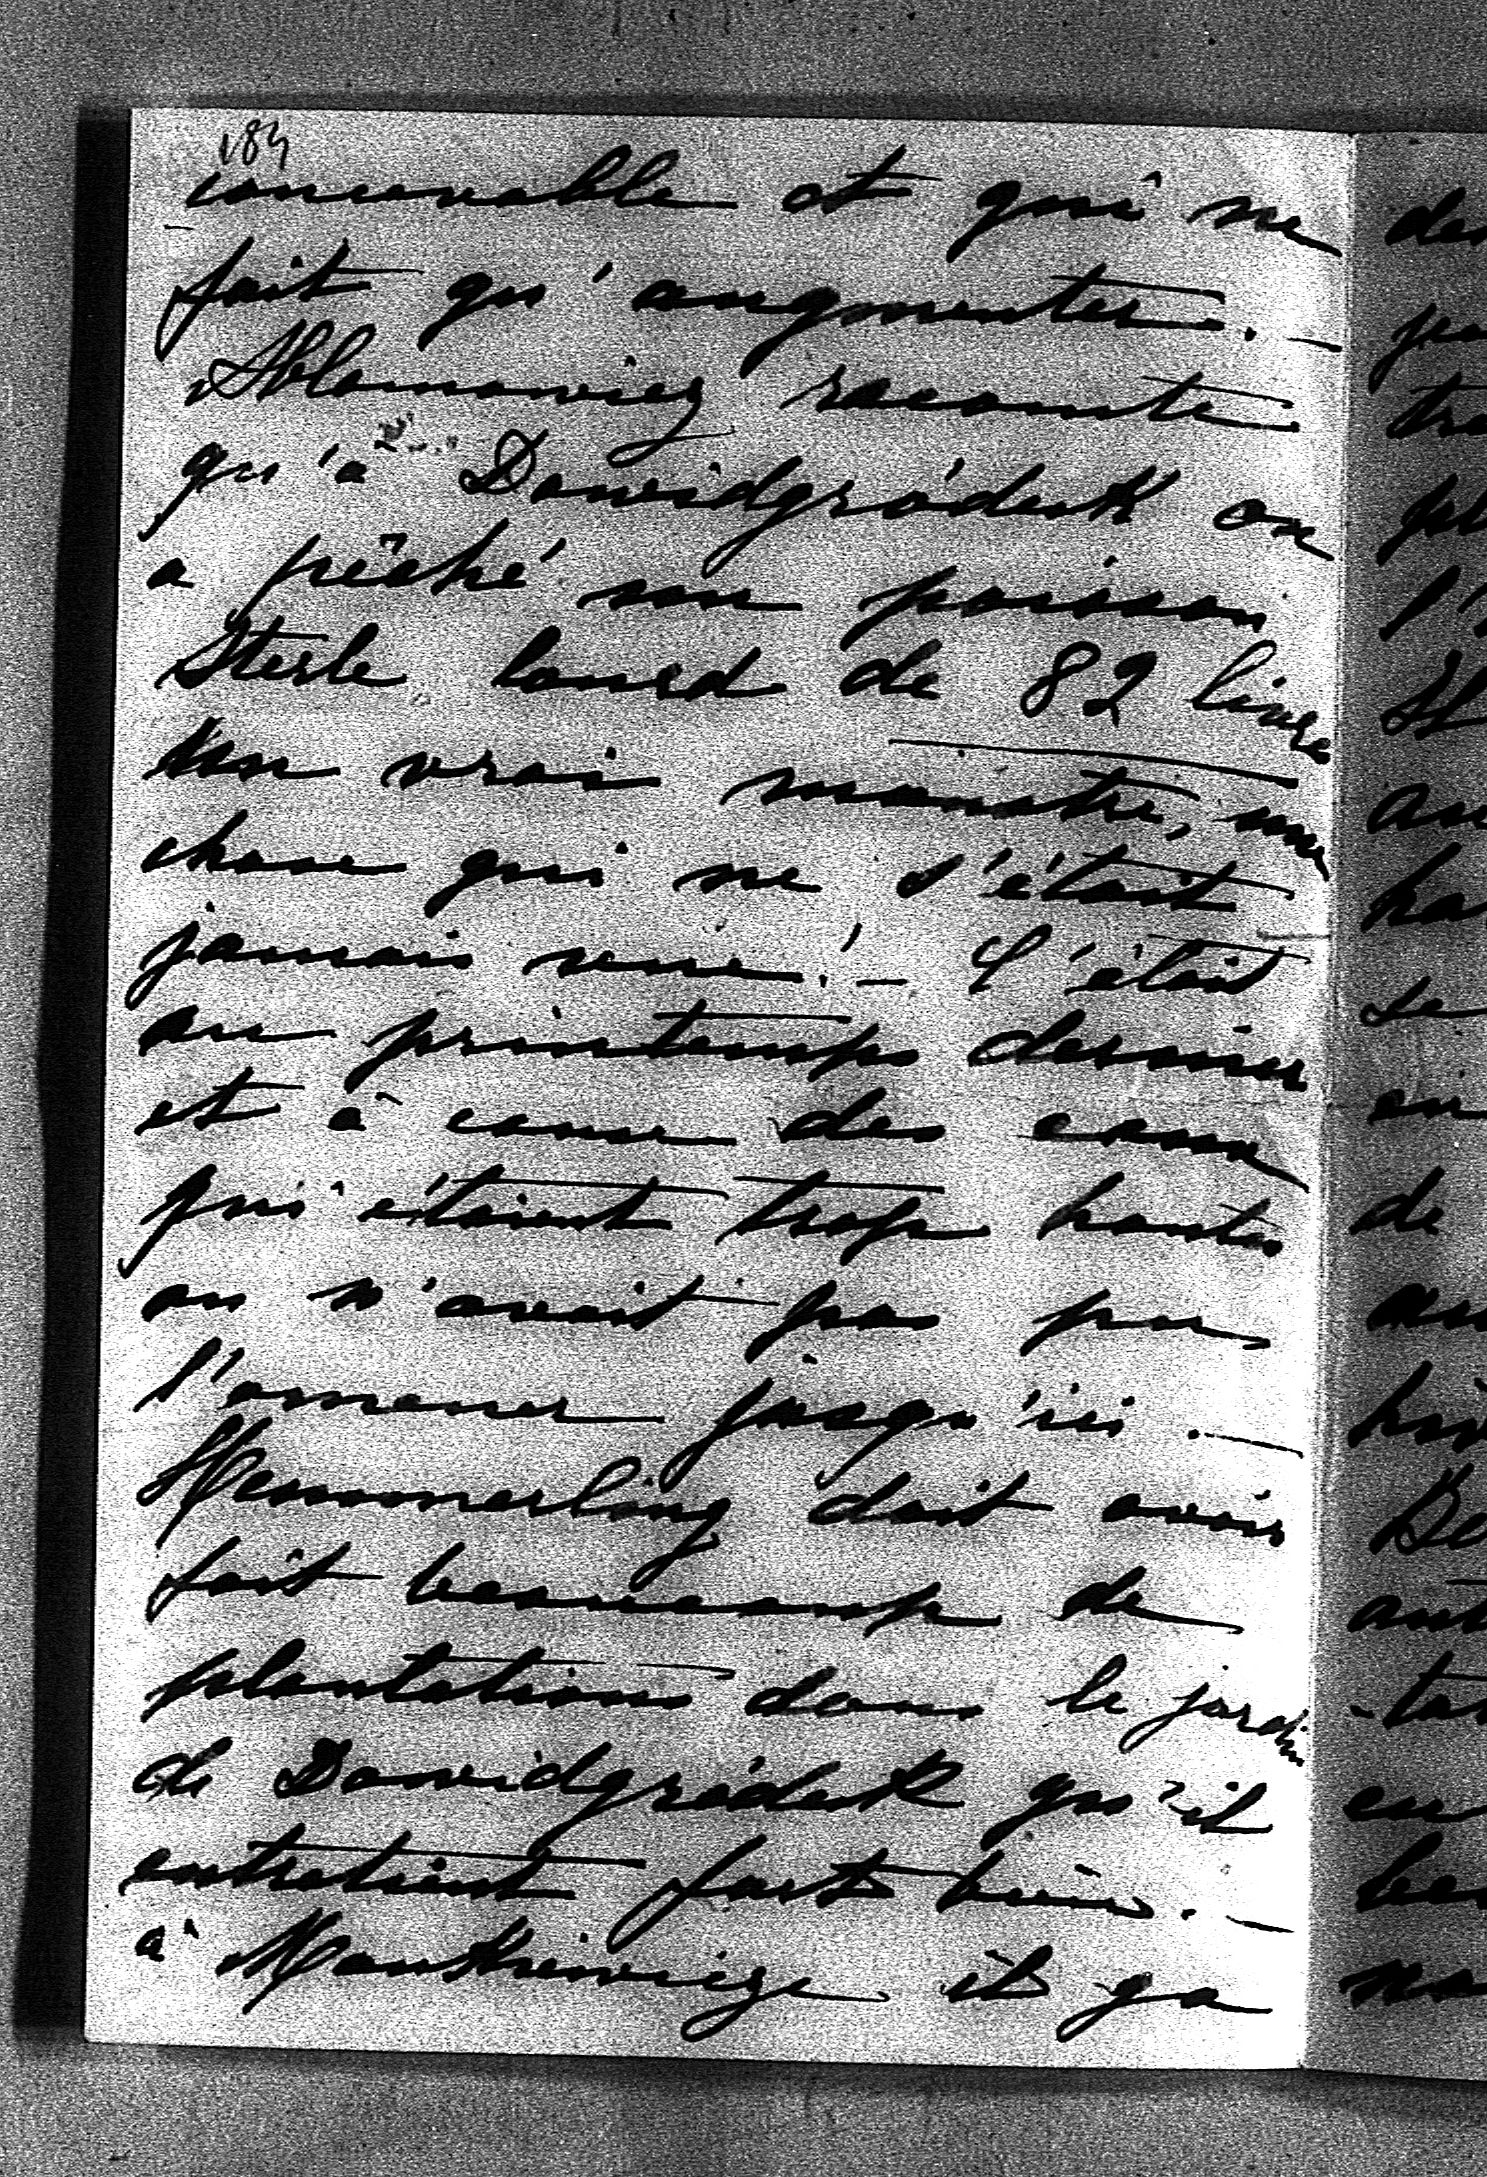 184
concevable et qui ne
fait qu'augmenter. —
Ablamowicz raconte
qu'à Dawidgródek on
a pêché un poisson
Sterle lourd de 82 livre
Un vrai monstre, une
chose qui ne s'était
jamais vue! — C'était
au printemps dernier
et à cause des eaux
qui étaient trop hautes
on n'avait pas pu
l'amener jusqu'ici. —
Hemmerling doit avoir
fait beaucoup de
plantations dans le jardin
de Dawidgródek qu'il
entretient fort bien. —
à Mankiewicze il y a